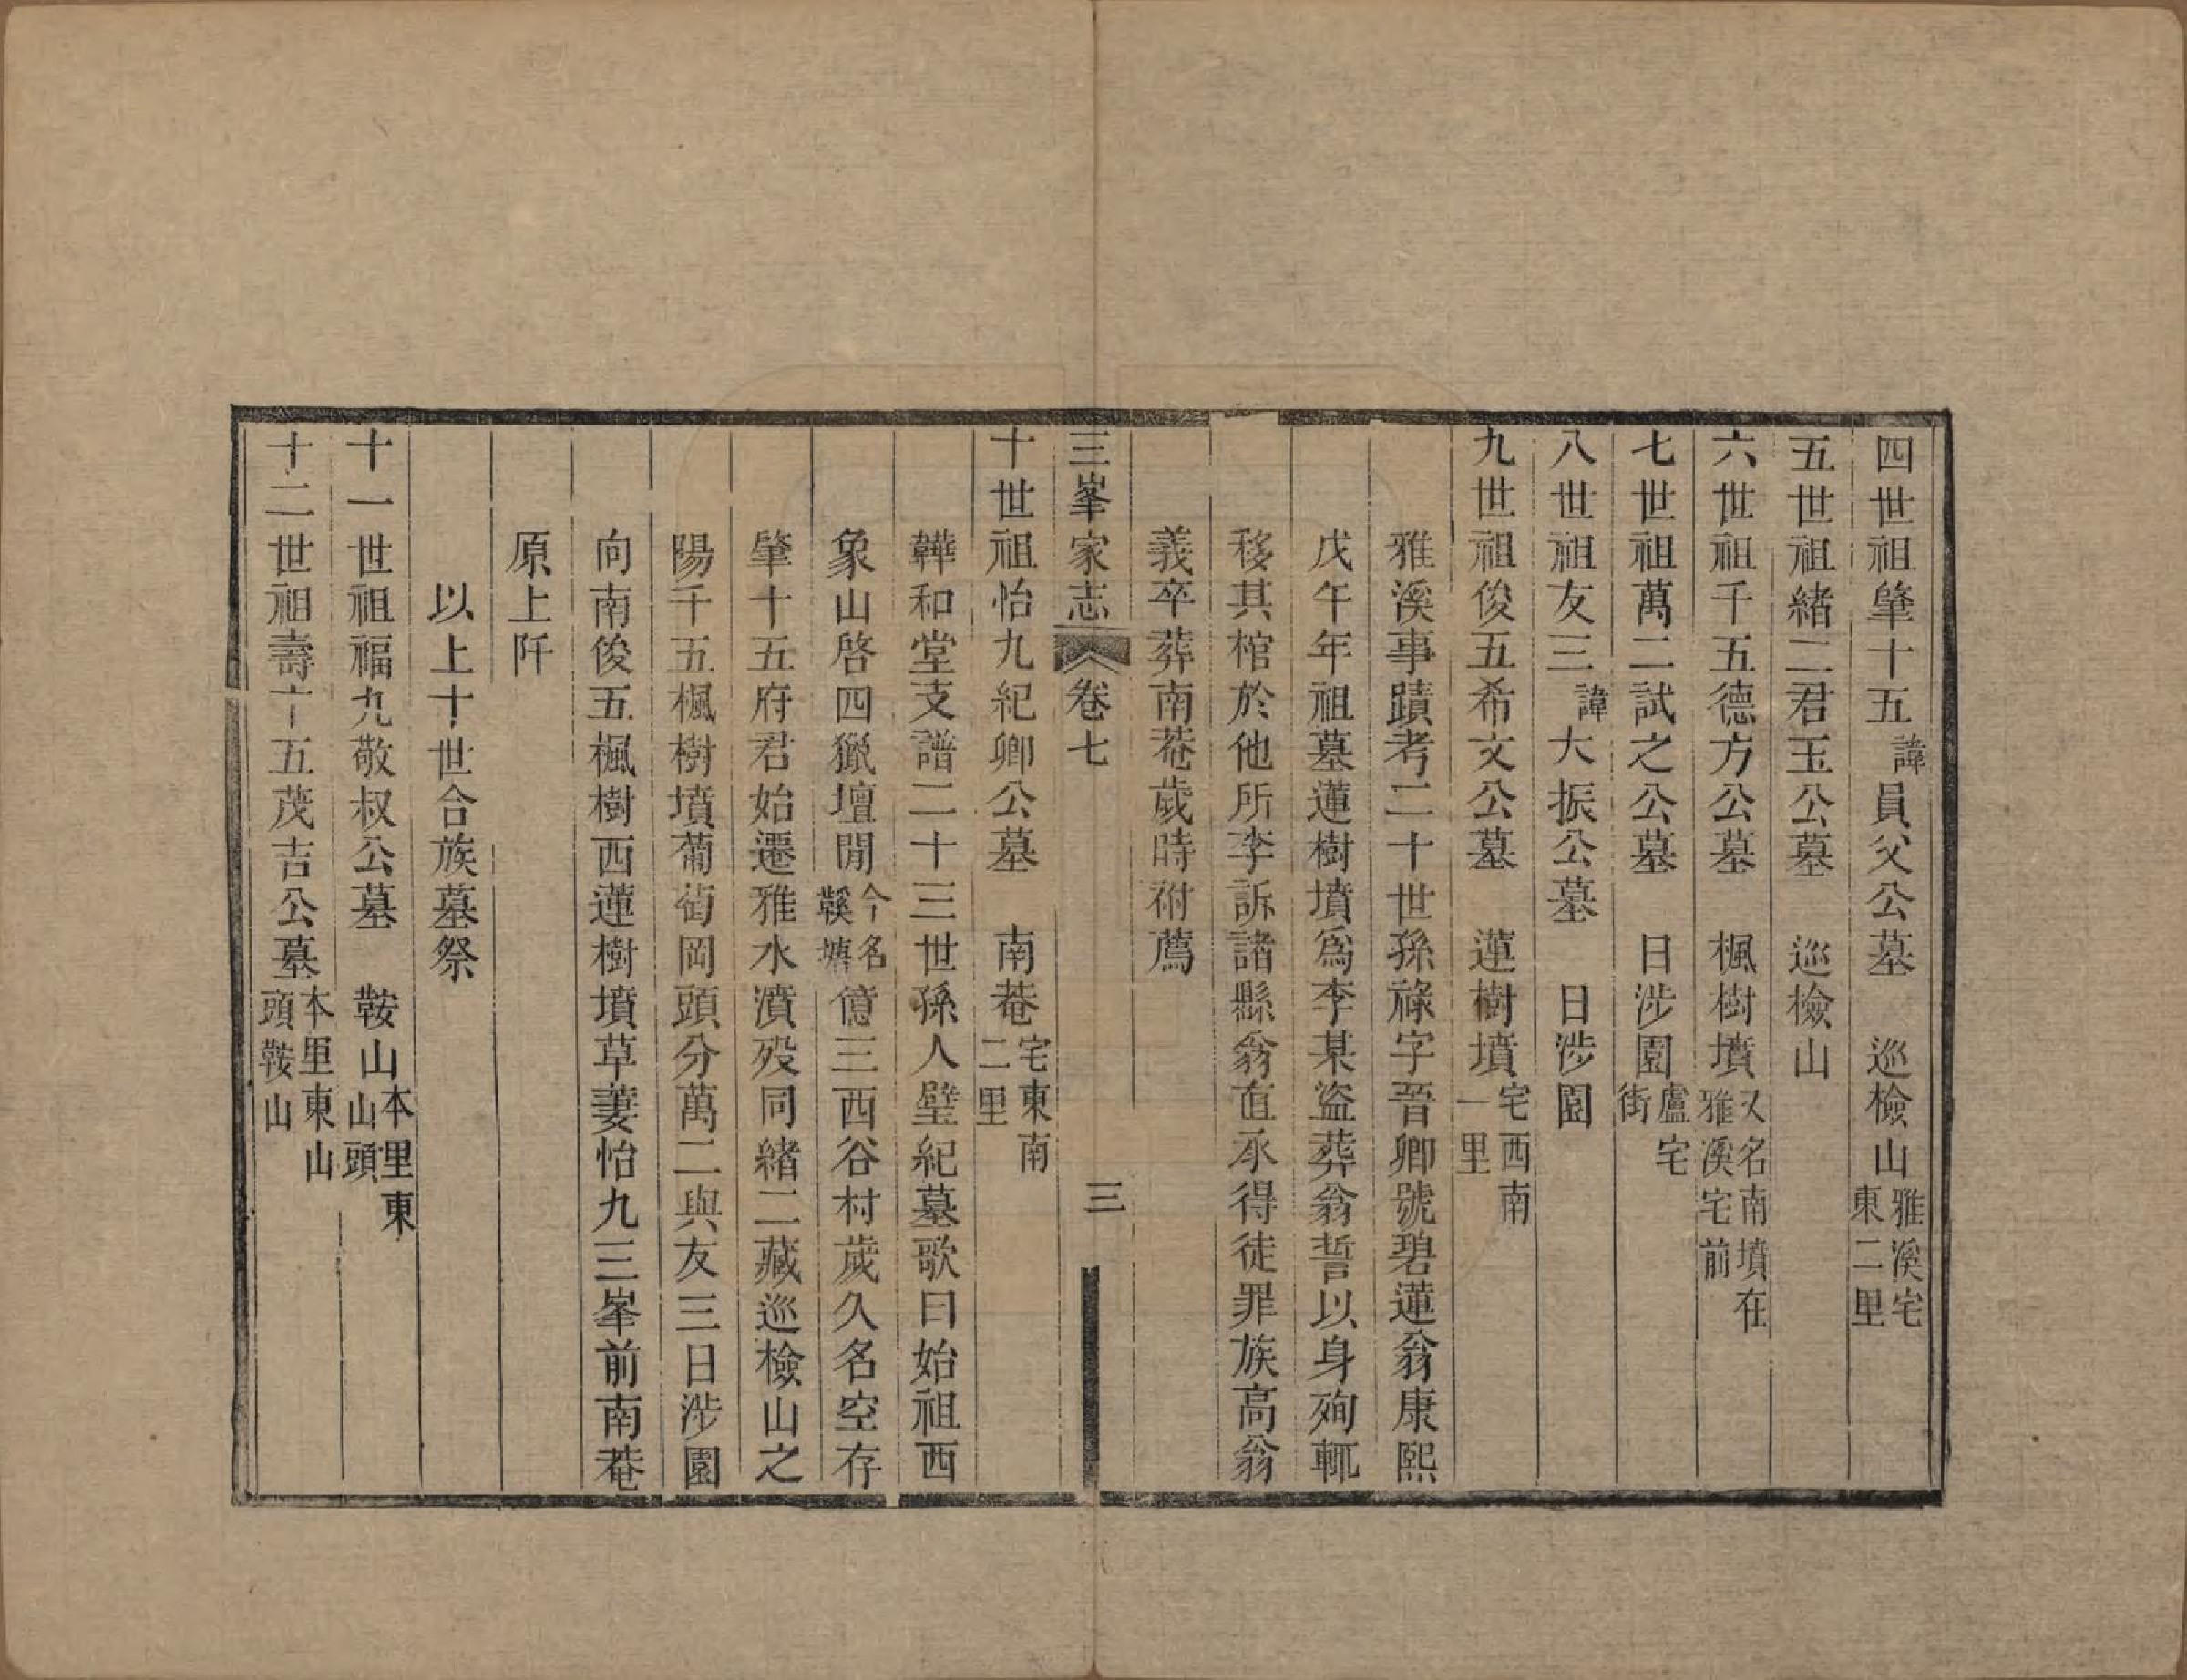 四世祖肇十五諱員父公墓　巡檢山雅溪宅東二里
五世祖緒二君玉公墓　巡檢山
六世祖千五德方公墓　楓樹墳又名南墳在雅溪宅前
七世祖萬二試之公墓　日涉園盧宅街
八世祖友三諱大振公墓　日涉園
九世祖俊五希文公墓　蓮樹墳宅西南一里
雅溪事蹟考二十世孫祿字晉卿號碧蓮翁康熙
戊午年祖墓蓮樹墳爲李某盜葬翁誓以身殉輒
移其棺於他所李訴諸縣翁直承得徒罪族高翁
義卒葬南菴歲時祔薦
三峯家志　卷七　三
十世祖怡九紀卿公墓　南菴宅東南二里
韡和堂支譜二十三世孫人壁紀墓歌曰始祖西
象山啓四獵壇閒今名鞵塘億三西谷村歲久名空存
肇十五府君始遷雅水濱歿同緒二藏巡檢山之
陽千五楓樹墳葡萄岡頭分萬二與友三日涉園
向南俊五楓樹西蓮樹墳草萋怡九三峯前南菴
原上阡
以上十世合族墓祭
十一世祖福九敬叔公墓　鞍山本里東山頭
十二世祖壽十五茂吉公墓本里東山頭鞍山